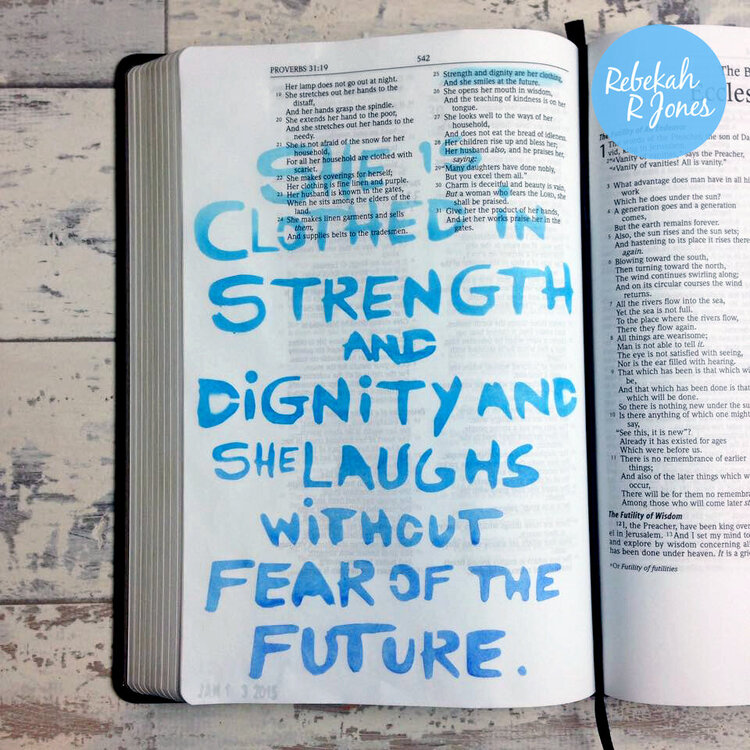 PROVERBS 31:19
542
Her lamp does not go out at night.
19 She stretches out her hands to the
distaff,
And her hands grasp the spindle.
20 She extends her hand to the poor,
And she stretches out her hands to the
needy.
21 She is not afraid of the snow for her
household,
For all her household are clothed with
scarlet.
22 She makes coverings for herself;
Her clothing is fine linen and purple.
23 Her husband is known in the gates,
When he sits among the elders of the
land.
24 She makes linen garments and sells
them,
And supplies belts to the tradesmen.
25 Strength and dignity are her clothing,
And she smiles at the future.
26 She opens her mouth in wisdom,
And the teaching of kindness is on her
tongue.
27 She looks well to the ways of her
household,
And does not eat the bread of idleness.
28 Her children rise up and bless her;
Her husband also, and he praises her,
saying:
29 "Many daughters have done nobly,
But you excel them all."
30 Charm is deceitful and beauty is vain,
But a woman who fears the LORD, she
shall be praised.
31 Give her the product of her hands,
And let her works praise her in the
gates.
SHE IS
CLOTHED IN
STRENGTH
AND
DiGNiTY AND
SHE LAUGHS
WiTHOUT
FEAR OF THE
FUTURE.
JAN 1 3 2015
Rebekah
R Jones
The B
Eccles
The Futility of All Endeavor
1
the son of Da
vid, king in Jerusalem.
2 "Vanity of vanities," says the Preacher,
"Vanity of vanities! All is vanity."
3 What advantage does man have in all hi
work
Which he does under the sun?
4 A generation goes and a generation
comes,
But the earth remains forever.
5 Also, the sun rises and the sun sets;
And hastening to its place it rises there
again.
6 Blowing toward the south,
Then turning toward the north,
The wind continues swirling along;
And on its circular courses the wind
returns.
7 All the rivers flow into the sea,
Yet the sea is not full.
To the place where the rivers flow,
There they flow again.
8 All things are wearisome;
Man is not able to tell it.
The eye is not satisfied with seeing,
Nor is the ear filled with hearing.
9 That which has been is that which wi
be,
And that which has been done is that
which will be done.
So there is nothing new under the su
10 Is there anything of which one might
say,
"See this, it is new"?
Already it has existed for ages
Which were before us.
11 There is no remembrance of earlier
things;
And also of the later things which w
occur,
There will be for them no remembr
Among those who will come later st
The Futility of Wisdom
12 I, the Preacher, have been king over
el in Jerusalem. 13 And I set my mind to
and explore by wisdom concerning all
has been done under heaven. It is a grie
*Or Futility of futilities